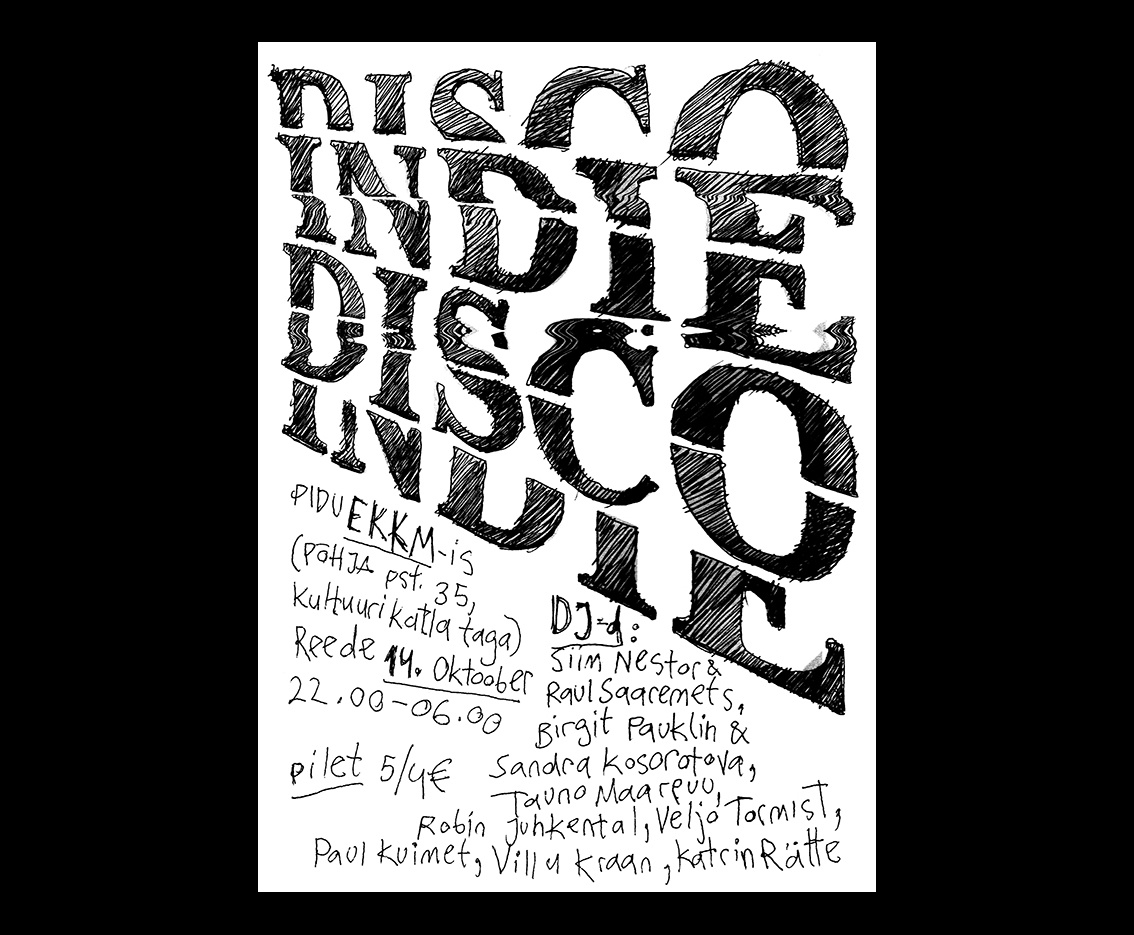 DISCO
INDIE
DISCO
INDIE
PIDU EKKM-is
(PÕHJA pst. 35,
kultuurikatla taga)
Reede 14. Oktoober
22.00–06.00
pilet 5/4€
DJ-d:
Siim Nestor &
Raul Saaremets,
Birgit Pauklin &
Sandra Kosorotova,
Tauno Maarpuu,
Robin Juhkental, Veljo Tormist,
Paul Kuimet, Villu Kraan, Katrin Rätte